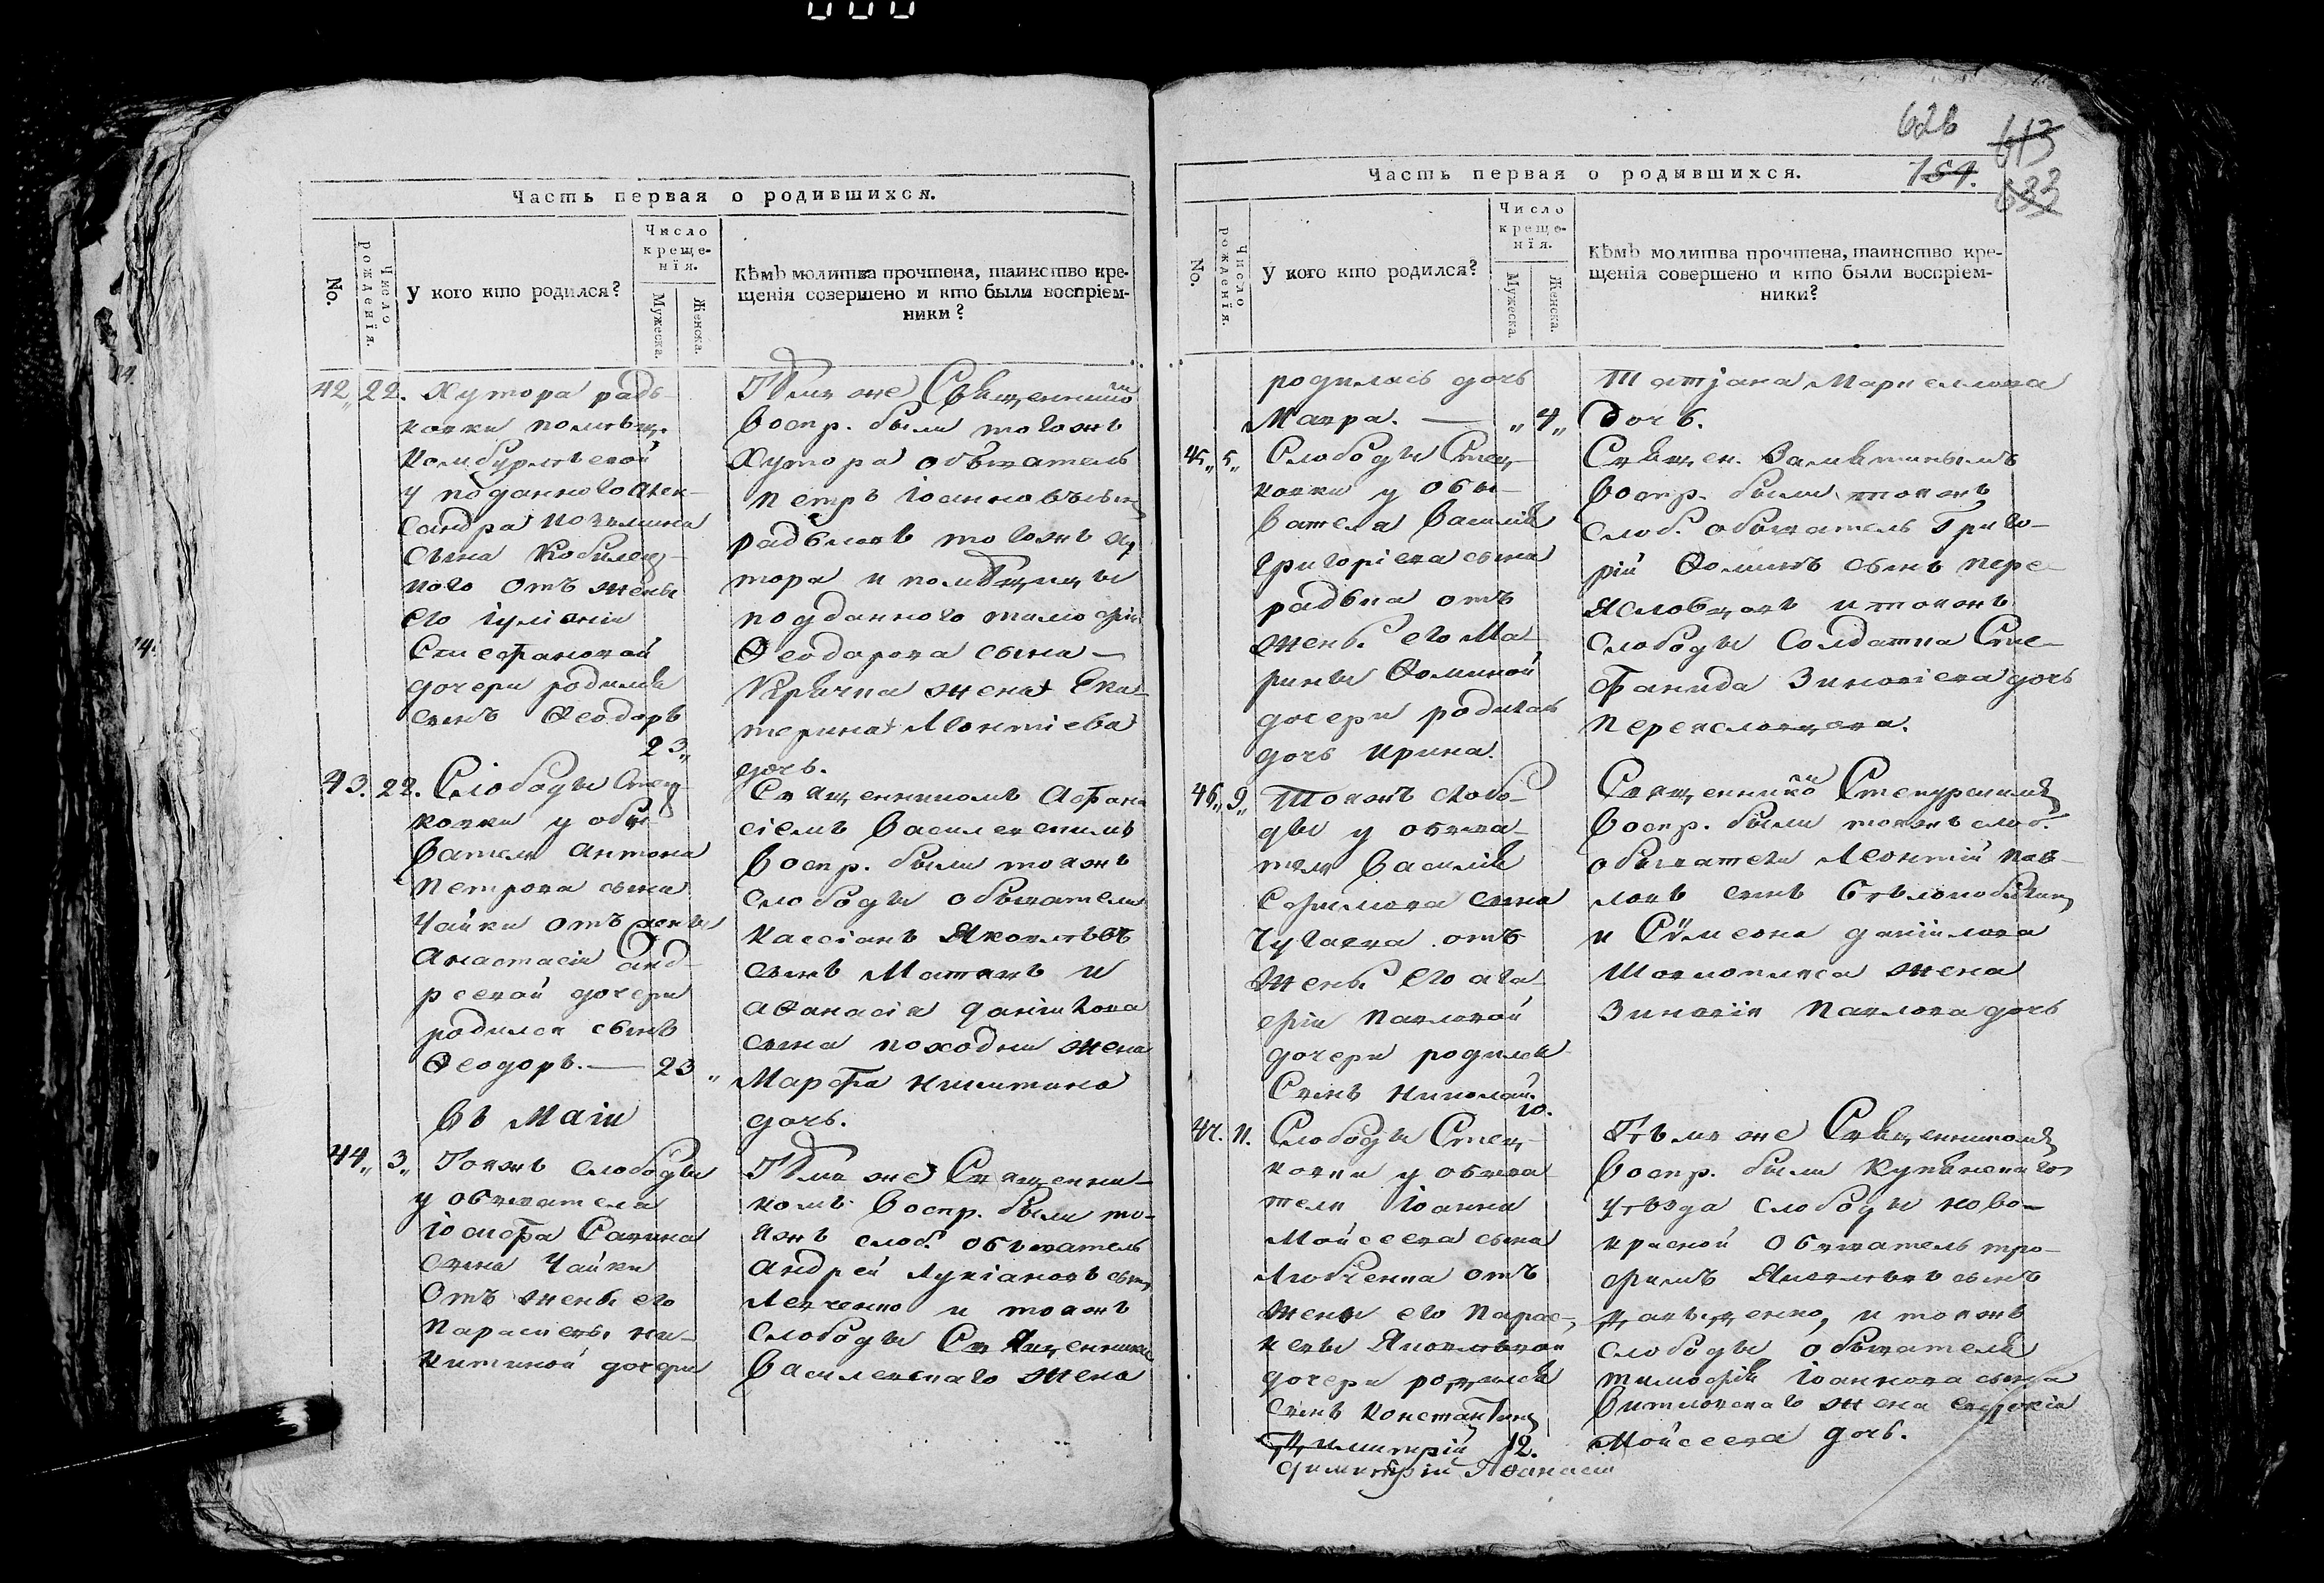 Часть первая о родившихся.
No.
Число рожденія.
У кого кто родился?
Число
креще-
нія.
Мужеска.
Женска.
Кѣмъ молитва прочтена, таинство кре-
щенія совершено и кто были воспріем-
ники?
42„ 22. Хутора радь-
ковки помѣщ.
у подданного Алек-
сандра
сына
ного отъ жены
его Іуліаніи
Стефановой
дочери родился
сынъ Ѳеодоръ
23„
Тѣмъ же Священником
воспр. были тогожъ
Хутора обыватель
Петръ Іоанновъ сын
тогожъ ху
тора и помѣщицы
подданного тимофія
Ѳеодорова сына
жена Ека-
терина Леонтіева
дочь.
43. 22. Слободы Стец
ковки у обы-
вателя Антона
Петрова сына
Чайки отъ жены
Анастасіи Анд-
реевой дочери
родился сынъ
Ѳеодоръ. — 23„
Священникомъ Афана
сіемъ Василевскимъ
воспр. были тоежъ
слободы обыватели
Кассіанъ Яковлевъ
сынъ и
Аѳанасія Даніилова
сына походни жена
Марфа Никитина
дочь.
въ Маіи
44„ 3„ Тоежъ слободы
у обывателя
Іосифа Савина
сына Чайки
отъ жены его
Параскевы Ни-
китиной дочери
Тѣмъ же Священни-
комъ воспр. были то-
яжъ слоб. обыватель
Андрей Лукіановъ сын
Левченко и тоежъ
слободы Священника
Василевскаго жена
628
613
151.
633
Часть первая о родившихся.
No.
Число рожденія.
У кого кто родился?
Число
креще-
нія.
Мужеска.
Женска.
Кѣмъ молитва прочтена, таинство кре-
щенія совершено и кто были воспріем-
ники?
родилась дочь
Мавра. — „ 4„
Татіана
дочь.
45„ 5„ Слободы Стец
ковки у обы-
вателя Василія
Григоріева сына
отъ
жены его Ма-
рины Ѳоминой
дочери родилась
дочь Ирина.
Священ.
воспр. были тоежъ
слоб. обыватель Григо-
рій Ѳоминъ сынъ пере-
яславцовъ и тоежъ
слободы Солдатка Сте-
фанида Зиновіева дочь
Переяславцова.
46„ 9„ Тоежъ слобо-
ды у обыва-
теля Василія
сына
Чугаева отъ
жены его Ага-
фіи Павловой
дочери родился
сынъ Николай.
10.
Священнико
воспр. были тоежъ слоб.
обыватели Леонтій Пав-
ловъ сынъ
и Сѵмеона Даніилова
жена
Зиновія Павлова дочь
47. 11. Слободы Стец-
ковки у обыва-
теля Іоанна
Мойсеева сына
отъ
жены его Парас-
кевы Яковлевой
дочери родился
сынъ Константинъ
Димитрій 12.
Димитрій Афанасій
Тѣмъ же Священником
воспр. были Купянскаго
уѣзда слободы Ново-
красной обыватель тро-
фимъ Яковлевъ сынъ
и тоежъ
слободы обывателя
тимофія Іоаннова сына
жена
Мойсеева дочь.